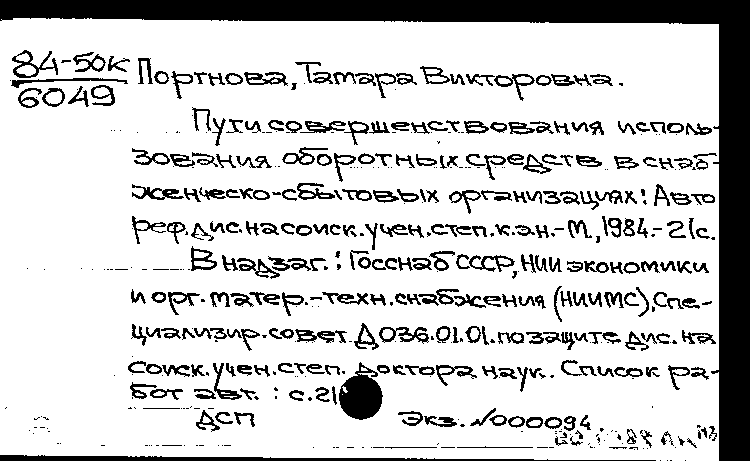 84-50к Портнова, Тамара Викторовна.
6049
Пути совершенствования исполь-
зования оборотных средств в снаб-
женческо-сбытовых организациях: Авто
реф. дис. на соиск. учен. степ. к.э.н. - М., 1984. - 21с.
В надзаг.: Госснаб СССР, НИИ экономики
и орг. матер.-техн. снабжения (НИИМС), Спе-
циализир. совет Д 036.01.01. по защите дис. на
соиск. учен. степ. доктора наук. Список ра-
бот авт.: с. 21
ДСП Экз. №000094.